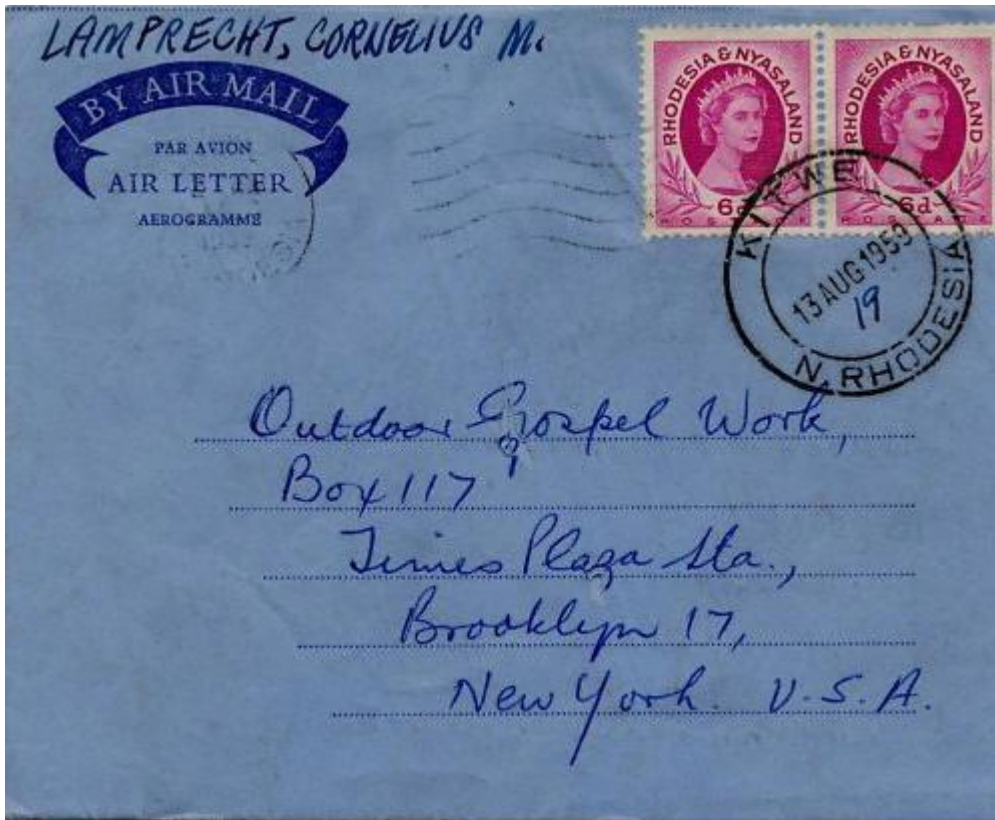 LAMPRECHT, CORNELIUS M.
BY AIR MAIL
PAR AVION
AIR LETTER
AEROGRAMME
RHODESIA & NYASALAND
6d
POSTAGE
RHODESIA & NYASALAND
6d
POSTAGE
KITWE
13 AUG 1959
19
N. RHODESIA
Outdoor Gospel Work,
Box 117
Times Plaza Sta.,
Brooklyn 17,
New York. U.S.A.